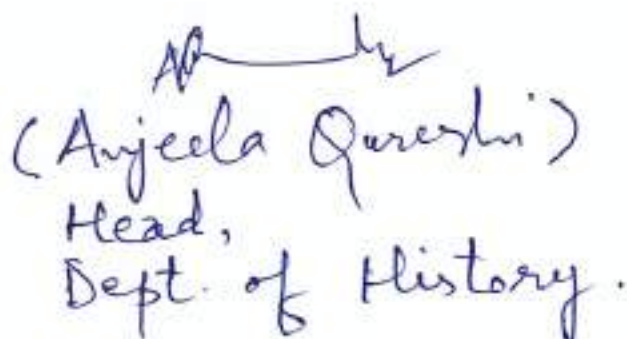 (Anjeela Qureshi)
Head,
Dept. of History.